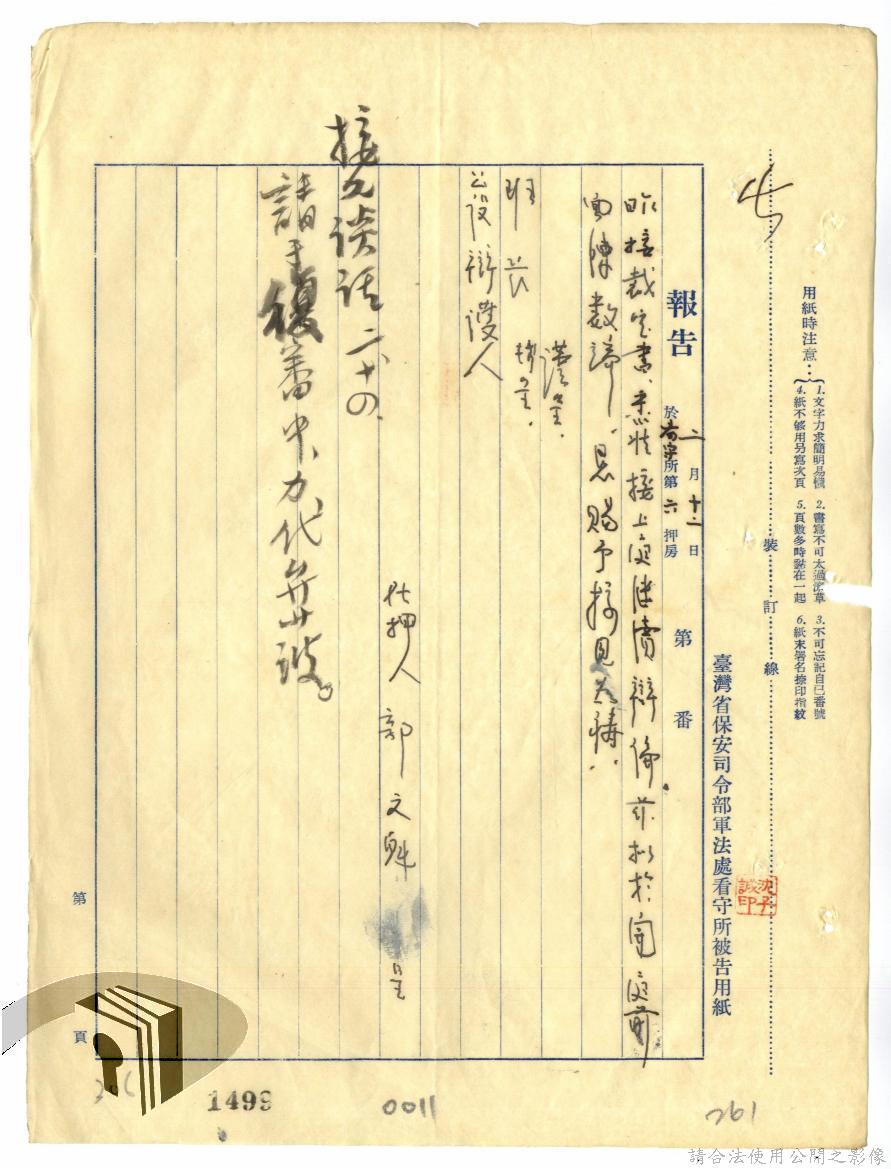 用紙時注意：
1.文字力求簡明易懂 2.書寫不可太過潦草 3.不可忘記自已番號
4.紙不够用另寫次頁 5.頁數多時黏在一起 6.紙末署名捺印指紋
裝 訂 線
臺灣省保安司令部軍法處看守所被告用紙
沈子誠印
報告 二月十二日 於看守所第六押房 第 番
昨接裁定書、悉將接上庭陳情辯論。茲擬於開庭前
面陳數端、恳賜予接見为禱。
謹呈
班長 轉呈
公設辯護人
在押人 郭文魁 呈
接見談話 二、十四、
請于複審中、力代弁護。
第 頁
1499
0011
261
請合法使用公開之影像